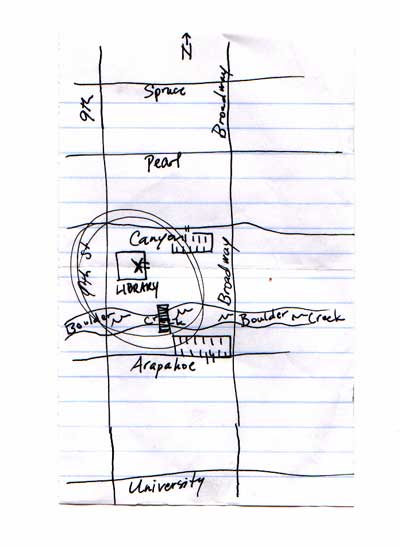 N
Spruce
9th
Broadway
Pearl
Canyon
9th St
LIBRARY
Broadway
Boulder
Creek
Boulder Creek
Arapahoe
University